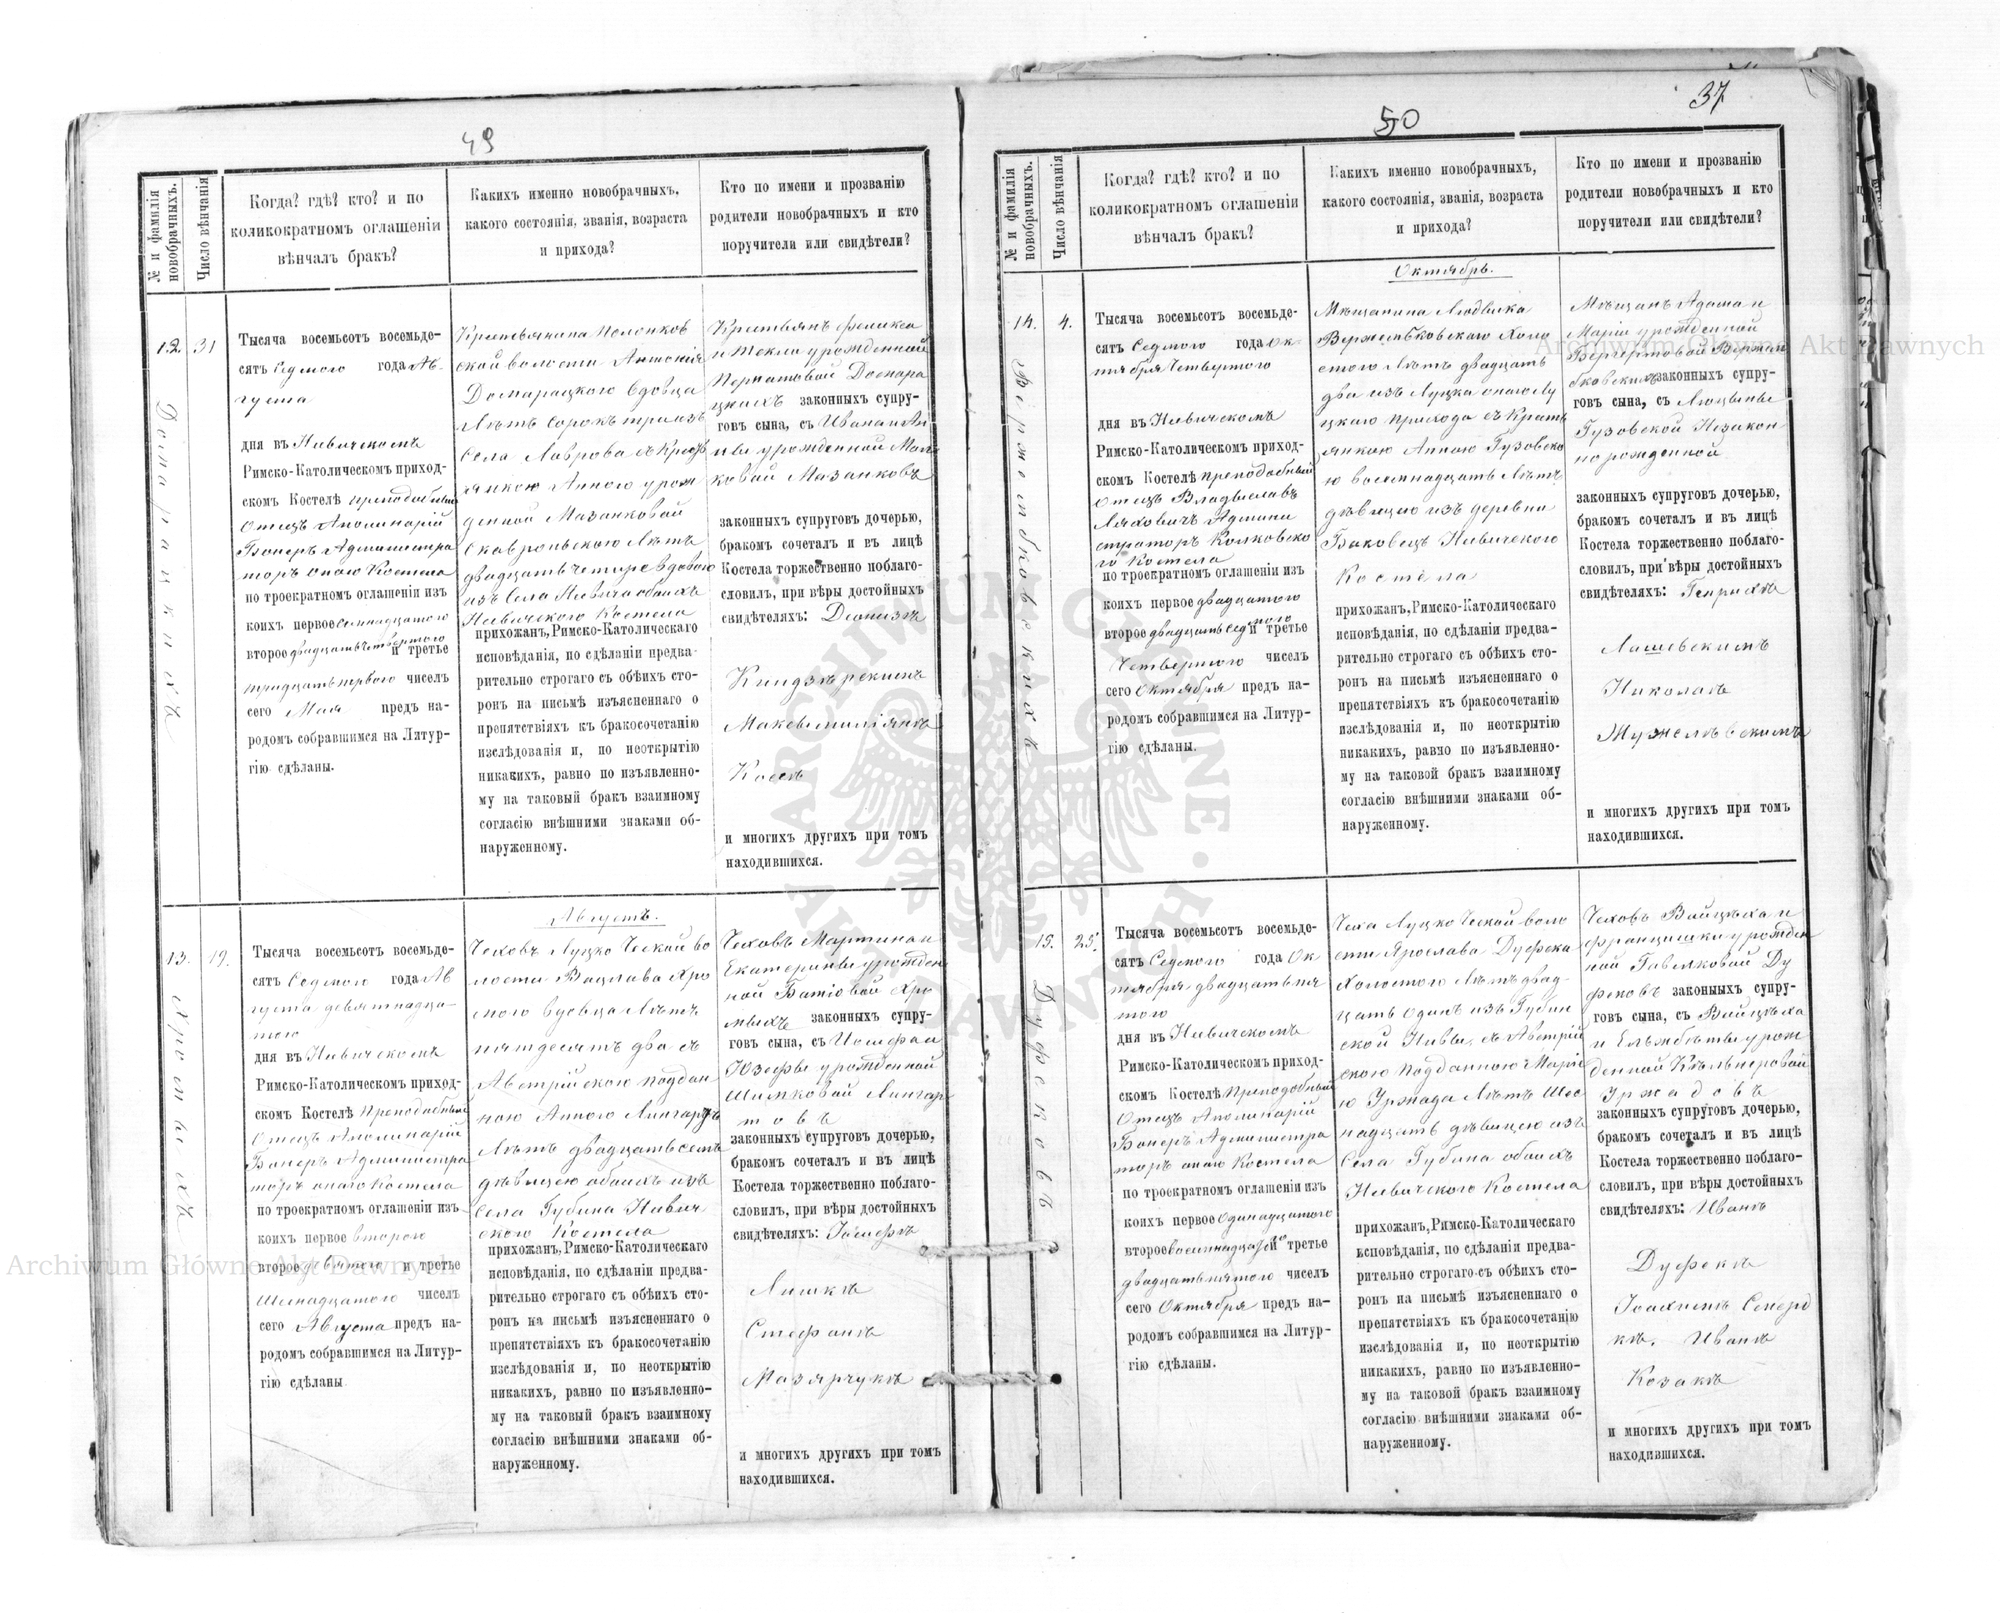 49
№ и фамилія новобрачныхъ.
Число вѣнчанія
Когда? гдѣ? кто? и по
коликократномъ оглашеніи
вѣнчалъ бракъ?
Какихъ именно новобрачныхъ,
какого состоянія, званія, возраста
и прихода?
Кто по имени и прозванію
родители новобрачныхъ и кто
поручители или свидѣтели?
12.
31
Домарацкихъ
Тысяча восемьсотъ восемьде-
сятъ Седмого года Ав-
густа
дня въ Нивичскомъ
Римско-Католическомъ приход-
скомъ Костелѣ преподобный
Отецъ Аполинарій
Бонеръ Администра
торъ онаго Костела
по троекратномъ оглашеніи изъ
коихъ первое семнадцатого
второе двадцать четвертого и третье
тридцать первого чиселъ
сего Мая предъ на-
родомъ собравшимся на Литур-
гію сдѣланы.
Крестьянина Полонков
ской волости Антонія
Домарацкого Вдовца
Лѣтъ сорокъ три изъ
Села Лаврова съ Кресть
янкою Анною урож
денной Мазанковой
Скавроньскою Лѣтъ
двадцать четыре вдовою
изъ Села Нивича обоихъ
Нивичского Костела
прихожанъ, Римско-Католическаго
исповѣданія, по сдѣланіи предва-
рительно строгаго съ обѣихъ сто-
ронъ на письмѣ изъясненнаго о
препятствіяхъ къ бракосочетанію
изслѣдованія и, по неоткрытію
никакихъ, равно по изъявленно-
му на таковый бракъ взаимному
согласію внѣшними знаками об-
наруженному.
Крестьянъ Феликса
и Теклы урожденной
Домара
цкихъ законныхъ супру-
говъ сына, съ Ивана и Ан-
ны урожденной
Мазанковъ
законныхъ супруговъ дочерью,
бракомъ сочеталъ и въ лицѣ
Костела торжественно поблаго-
словилъ, при вѣры достойныхъ
свидѣтеляхъ: Діонизъ
Киндзѣрскимъ
Максимиліянъ
Коскъ
и многихъ другихъ при томъ
находившихся.
13.
19.
Хромыхъ
Тысяча восемьсотъ восемьде-
сятъ Седмого года Ав
густа девятнадца-
того
дня въ Нивичскомъ
Римско-Католическомъ приход-
скомъ Костелѣ Преподобный
Отецъ Аполинарій
Бонеръ Администра
торъ онаго Костела
по троекратномъ оглашеніи изъ
коихъ первое второго
второе девятого и третье
Шеснадцатого чиселъ
сего Августа предъ на-
родомъ собравшимся на Литур-
гію сдѣланы.
Августъ.
Чеховъ Луцко Ческой во
лости Вацлава Хро
мого вдовца Лѣтъ
пятдесятъ два съ
Австрійскою поддан
ною Анною Лингартъ
Лѣтъ двадцать семъ
дѣвицею обоихъ изъ
Села Губина Нивич
ского Костела
прихожанъ, Римско-Католическаго
исповѣданія, по сдѣланіи предва-
рительно строгаго съ обѣихъ сто-
ронъ на письмѣ изъясненнаго о
препятствіяхъ къ бракосочетанію
изслѣдованія и, по неоткрытію
никакихъ, равно по изъявленно-
му на таковый бракъ взаимному
согласію внѣшними знаками об-
наруженному.
Чеховъ Мартина и
Екатерины урожден
ной Батіовой Хро
мыхъ законныхъ супру-
говъ сына, съ Іосифа и
Юзефы урожденной
Шимковой Лингар
товъ
законныхъ супруговъ дочерью,
бракомъ сочеталъ и въ лицѣ
Костела торжественно поблаго-
словилъ, при вѣры достойныхъ
свидѣтеляхъ: Іосифъ
Лишкъ
Стефанъ
Мазярчукъ
и многихъ другихъ при томъ
находившихся.
37
50
№ и фамилія новобрачныхъ.
Число вѣнчанія
Когда? гдѣ? кто? и по
коликократномъ оглашеніи
вѣнчалъ бракъ?
Какихъ именно новобрачныхъ,
какого состоянія, званія, возраста
и прихода?
Кто по имени и прозванію
родители новобрачныхъ и кто
поручители или свидѣтели?
14.
4.
Тысяча восемьсотъ восемьде-
сятъ Седмого года Ок-
тября Четвертого
дня въ Нивичскомъ
Римско-Католическомъ приход-
скомъ Костелѣ преподобный
Отецъ Владыславъ
Ляховичъ Админи
страторъ Колковско
го Костела
по троекратномъ оглашеніи изъ
коихъ первое двадцатого
второе двадцать седмого и третье
Четвертого чиселъ
сего Октября предъ на-
родомъ собравшимся на Литур-
гію сдѣланы.
Октябрь.
Мѣщанина Людвика
Холо
стого Лѣтъ двадцать
два изъ Луцка онаго Лу
цкаго прихода съ Кресть
янкою Анною Гузовско
ю восемнадцать Лѣтъ
дѣвицею изъ деревни
Баковецъ Нивичского
Костела
прихожанъ, Римско-Католическаго
исповѣданія, по сдѣланіи предва-
рительно строгаго съ обѣихъ сто-
ронъ на письмѣ изъясненнаго о
препятствіяхъ къ бракосочетанію
изслѣдованія и, по неоткрытію
никакихъ, равно по изъявленно-
му на таковой бракъ взаимному
согласію внѣшними знаками об-
наруженному.
Мѣщанъ Адама и
Маріи урожденной
законныхъ супру-
говъ сына, съ Люцыны
Гузовской Незакон-
норожденной
законныхъ супруговъ дочерью,
бракомъ сочеталъ и въ лицѣ
Костела торжественно поблаго-
словилъ, при вѣры достойныхъ
свидѣтеляхъ: Генрихъ
Лашевскимъ
Николаъ
и многихъ другихъ при томъ
находившихся.
15.
25.
Дуфековъ
Тысяча восемьсотъ восемьде-
сятъ Седмого года Ок
тября двадцать пя
того
дня въ Нивичскомъ
Римско-Католическомъ приход-
скомъ Костелѣ Преподобный
Отецъ Аполинарій
Бонеръ Администра
торъ онаго Костела
по троекратномъ оглашеніи изъ
коихъ первое одинадцатого
второе восемнадцатого и третье
двадцать пятого чиселъ
сего Октября предъ на-
родомъ собравшимся на Литур-
гію сдѣланы.
Чеха Луцко Ческой воло
сти Ярослава Дуфека
Холостого Лѣтъ двад-
цать одинъ изъ Губин
ской Нивы, съ Австрій
скою подданною Марі
ю Уржада Лѣтъ Шес
надцать дѣвицею изъ
Села Губина обоихъ
Нивичского Костела
прихожанъ, Римско-Католическаго
исповѣданія, по сдѣланіи предва-
рительно строгаго съ обѣихъ сто-
ронъ на письмѣ изъясненнаго о
препятствіяхъ къ бракосочетанію
изслѣдованія и, по неоткрытію
никакихъ, равно по изъявленно-
му на таковой бракъ взаимному
согласію внѣшними знаками об-
наруженному.
Чеховъ Войцѣха и
Францишки урожден
ной Гавляковой Ду
фековъ законныхъ супру-
говъ сына, съ Войцѣха
и Ельжбѣты урож
денной Кѣльнеровой
Уржадовъ
законныхъ супруговъ дочерью,
бракомъ сочеталъ и въ лицѣ
Костела торжественно поблаго-
словилъ, при вѣры достойныхъ
свидѣтеляхъ: Иванъ
Дуфекъ
Іоахимъ
Иванъ
Козакъ
и многихъ другихъ при томъ
находившихся.
Archiwum Główne Akt Dawnych
Archiwum Główne Akt Dawnych
ARCHIWUM GŁÓWNE AKT DAWNYCH